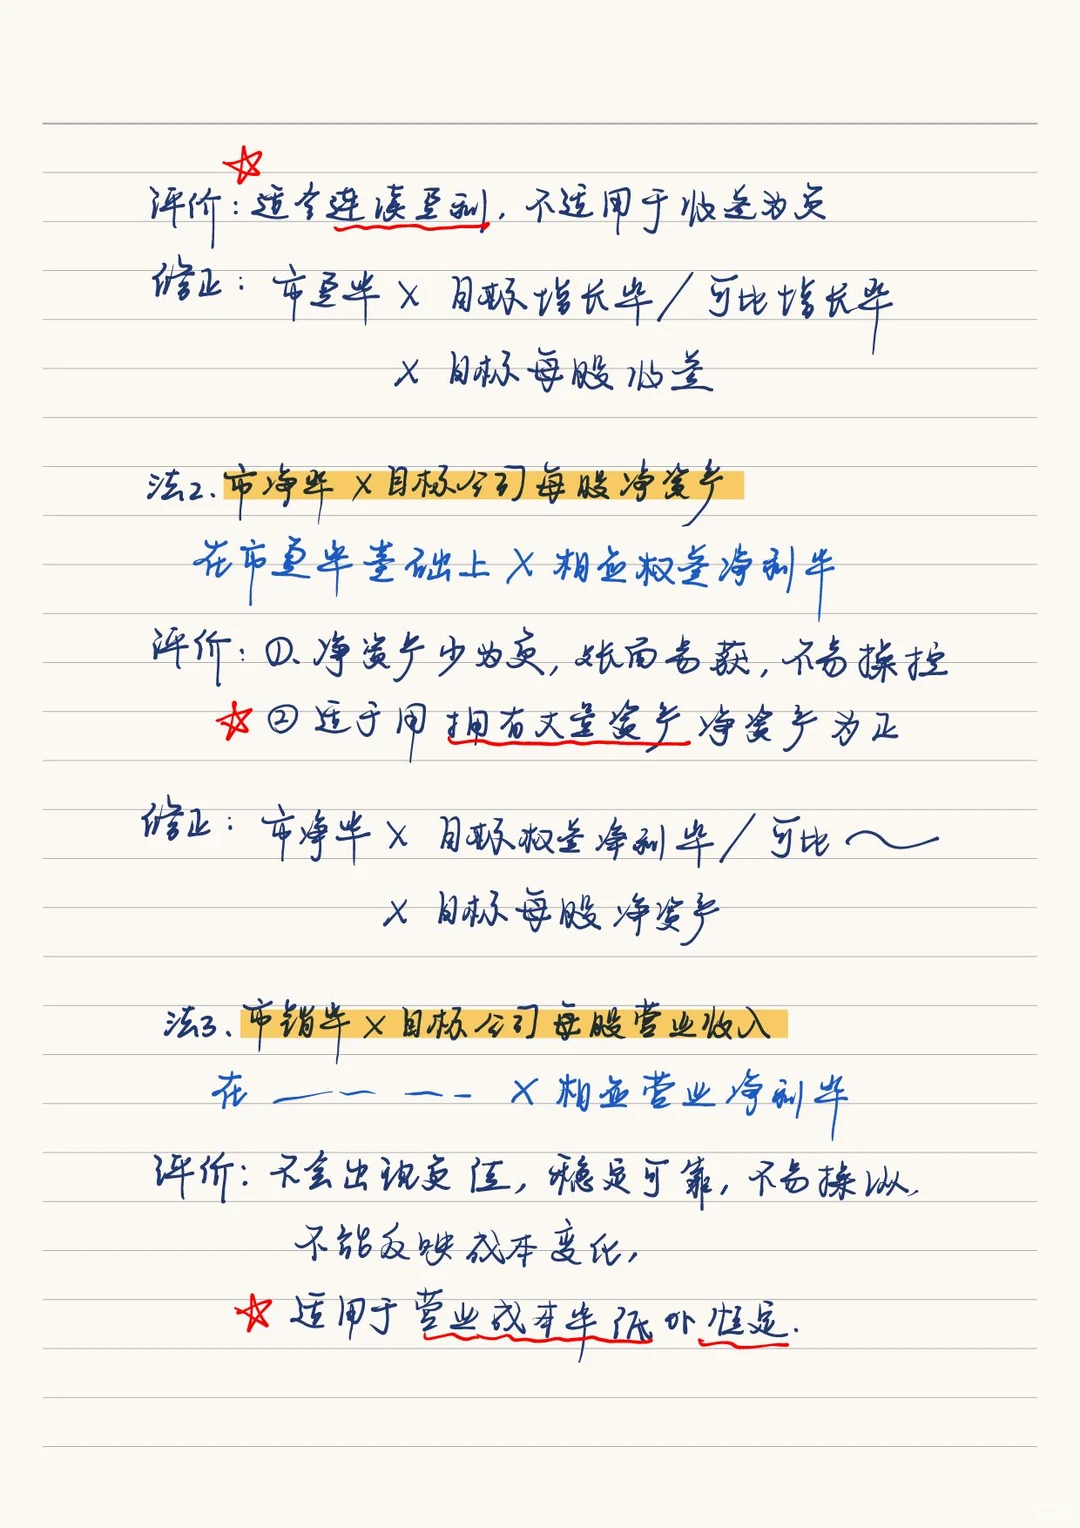 评价：适合连续盈利，不适用于收益为负
修正：市盈率 × 目标增长率／可比增长率
× 目标每股收益
法2、市净率 × 目标公司每股净资产
在市盈率基础上 × 相应权益净利率
评价：①、净资产少为负，账面易获，不易操控
② 适于用拥有大量资产 净资产为正
修正：市净率 × 目标权益净利率／可比 ～
× 目标每股净资产
法3、市销率 × 目标公司每股营业收入
在 —— —— × 相应营业净利率
评价：不会出现负值，稳定可靠，不易操纵，
不能反映成本变化，
适用于营业成本率低 or 恒定．